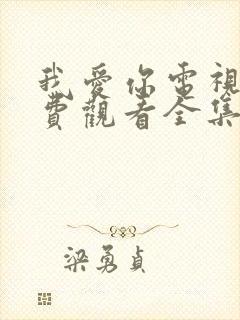 我愛你電視
費觀看全集
梁勇貞